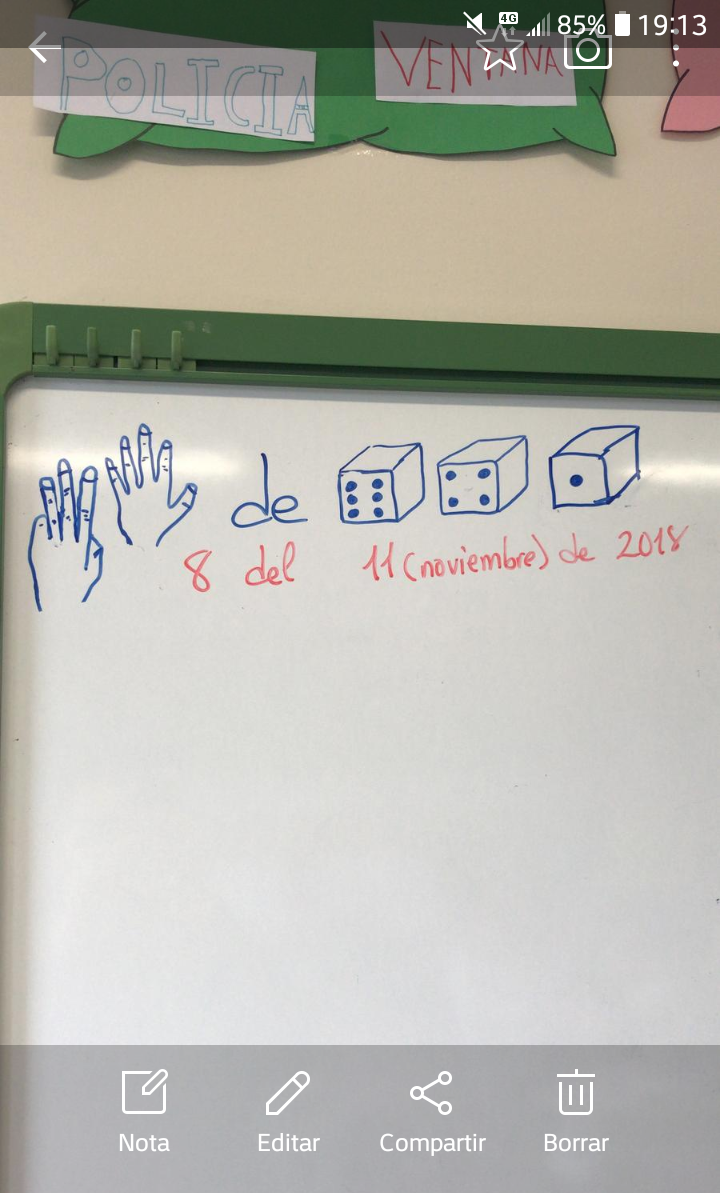 85% 19:13
POLICIA
VENTANA
de
8 del 11 (noviembre) de 2018
Nota Editar Compartir Borrar